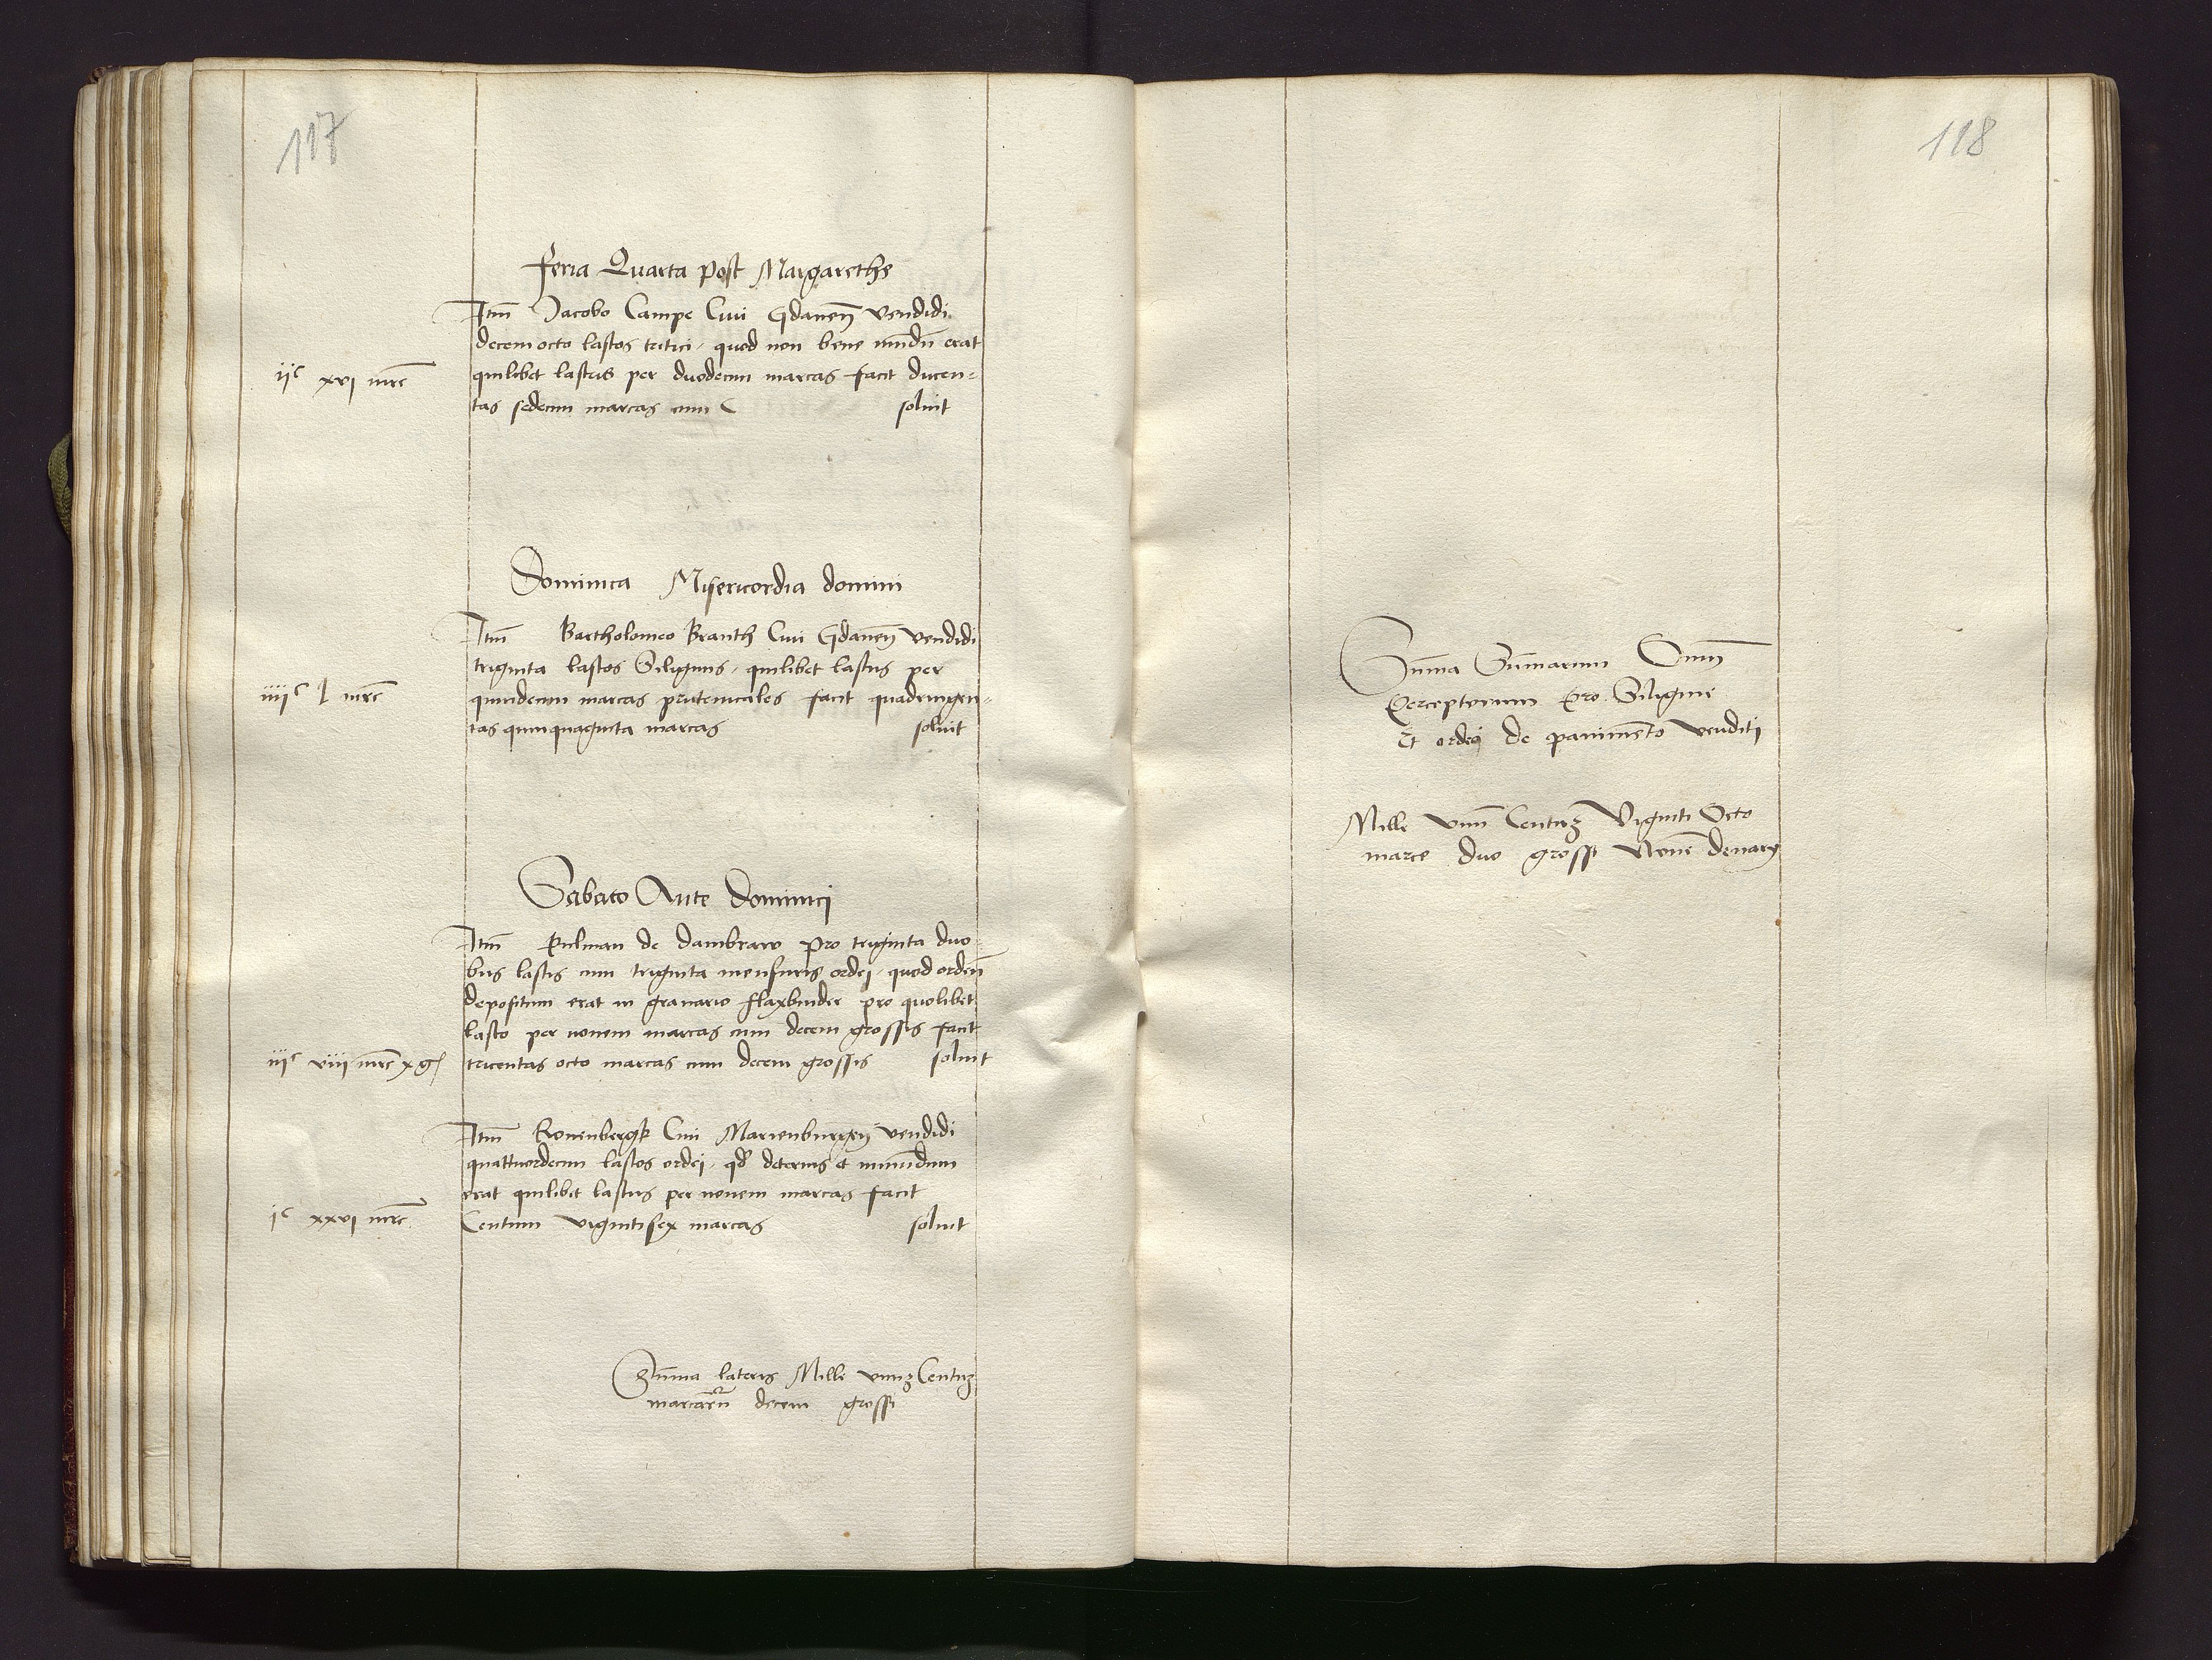 117
Feria Quarta post Margarethe
Itm Jacobo Campe Civi Gdanen vendidi
decem octo lastos tritici, quod non bene mudu erat
iic xvi mrc quilibet lastus per duodecim marcas facit ducen=
tas sedecim marcas cum soluit
Dominica Misericordia domini
Itm Bartholomeo Branth Civi Gdanen vendidi
triginta lastos Siliginis, quilibet lastus per
iiiic l mrc quindecim marcas prutenicales facit quadringen=
tas quinquaginta marcas soluit
Sabato Ante dominici
Itm Pulman de Dambraw pro triginta duo
bus lastis cum triginta mensuris ordei, quod ordeu
depositum erat in granario flaxbinder pro quolibet
lasto per novem marcas cum decem grossis facit
iiic viii mrc x g tricentas octo marcas cum decem grossis soluit
Itm Ronenbergk Civi Marienburgen vendidi
quattuordecim lastos ordei, qd deterius et inmudum
erat quilibet lastus per novem marcas facit
ic xxvi mrc Centum vigintisex marcas soluit
Suma lateris Mille unuz Centuz
marcaru decem grossi
118
Suma Sumarum Omni
Perceptorum Pro Siligine
Et ordei de pavimento venditi
Mille unu Centuz Viginti Octo
marce duo grossi Nove denarij